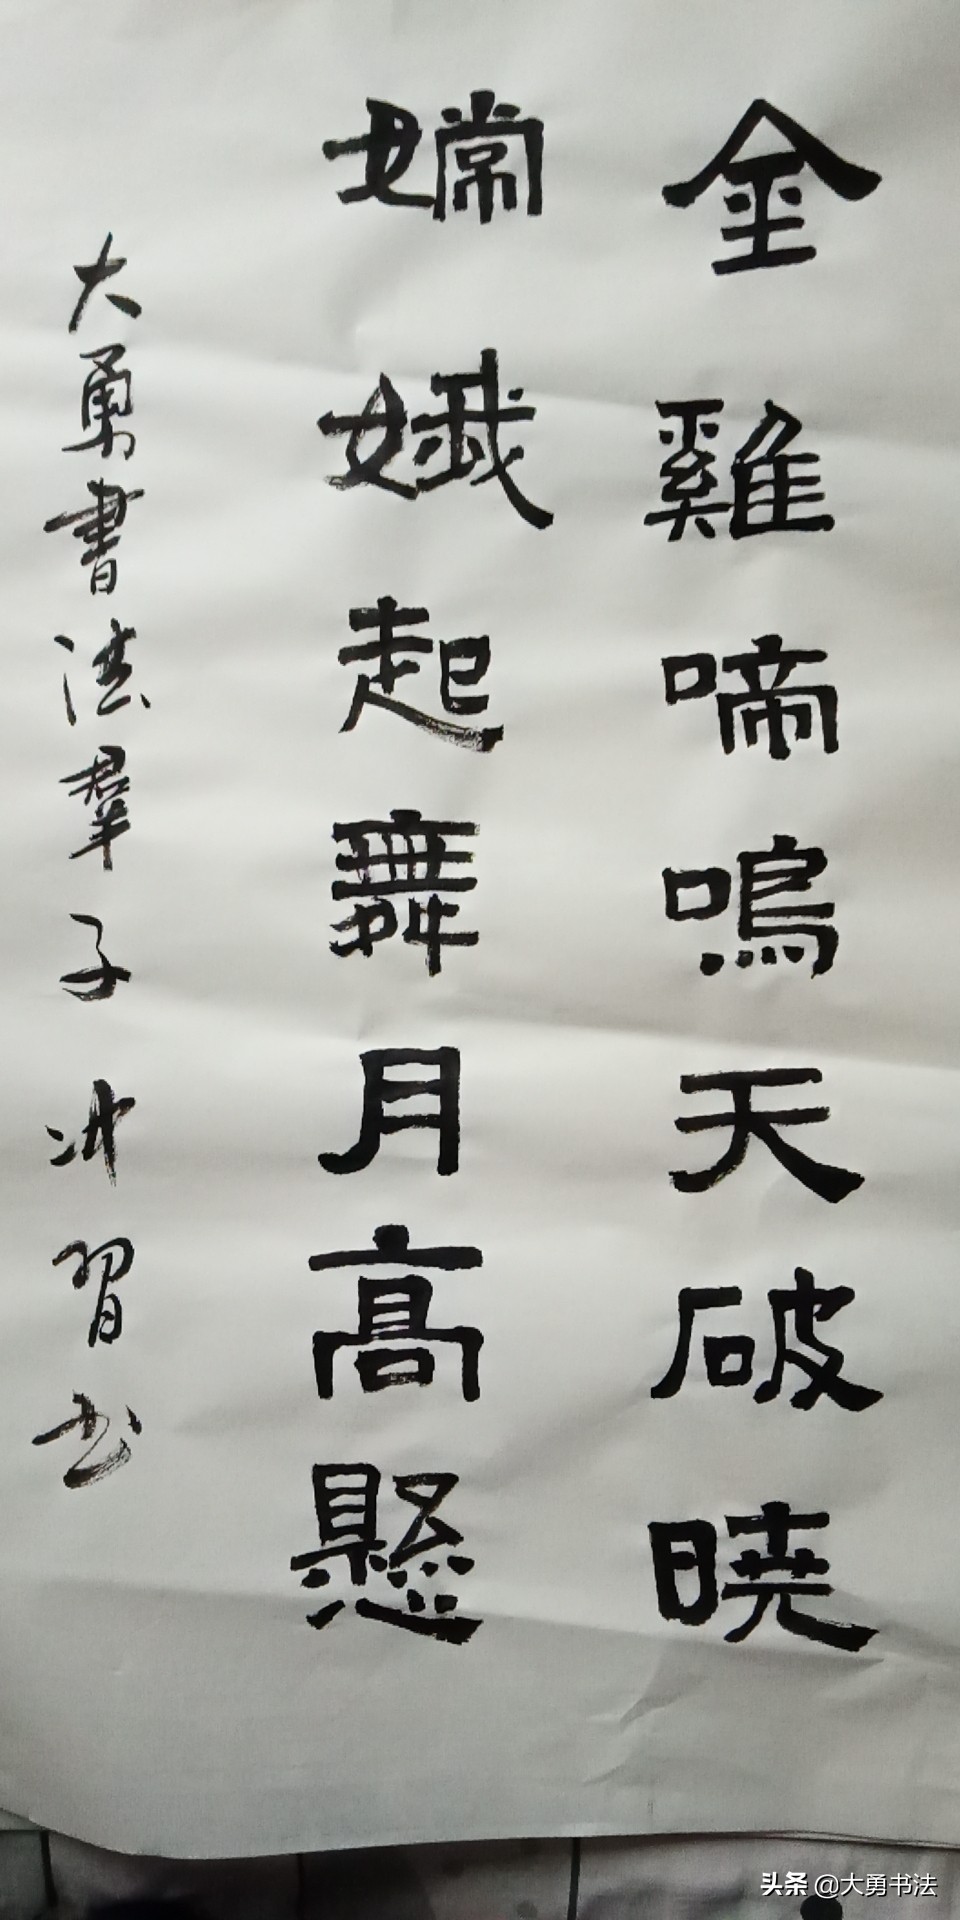 金雞啼鳴天破曉
嫦娥起舞月高懸
大勇書法羣子冲習书
头条 @大勇书法